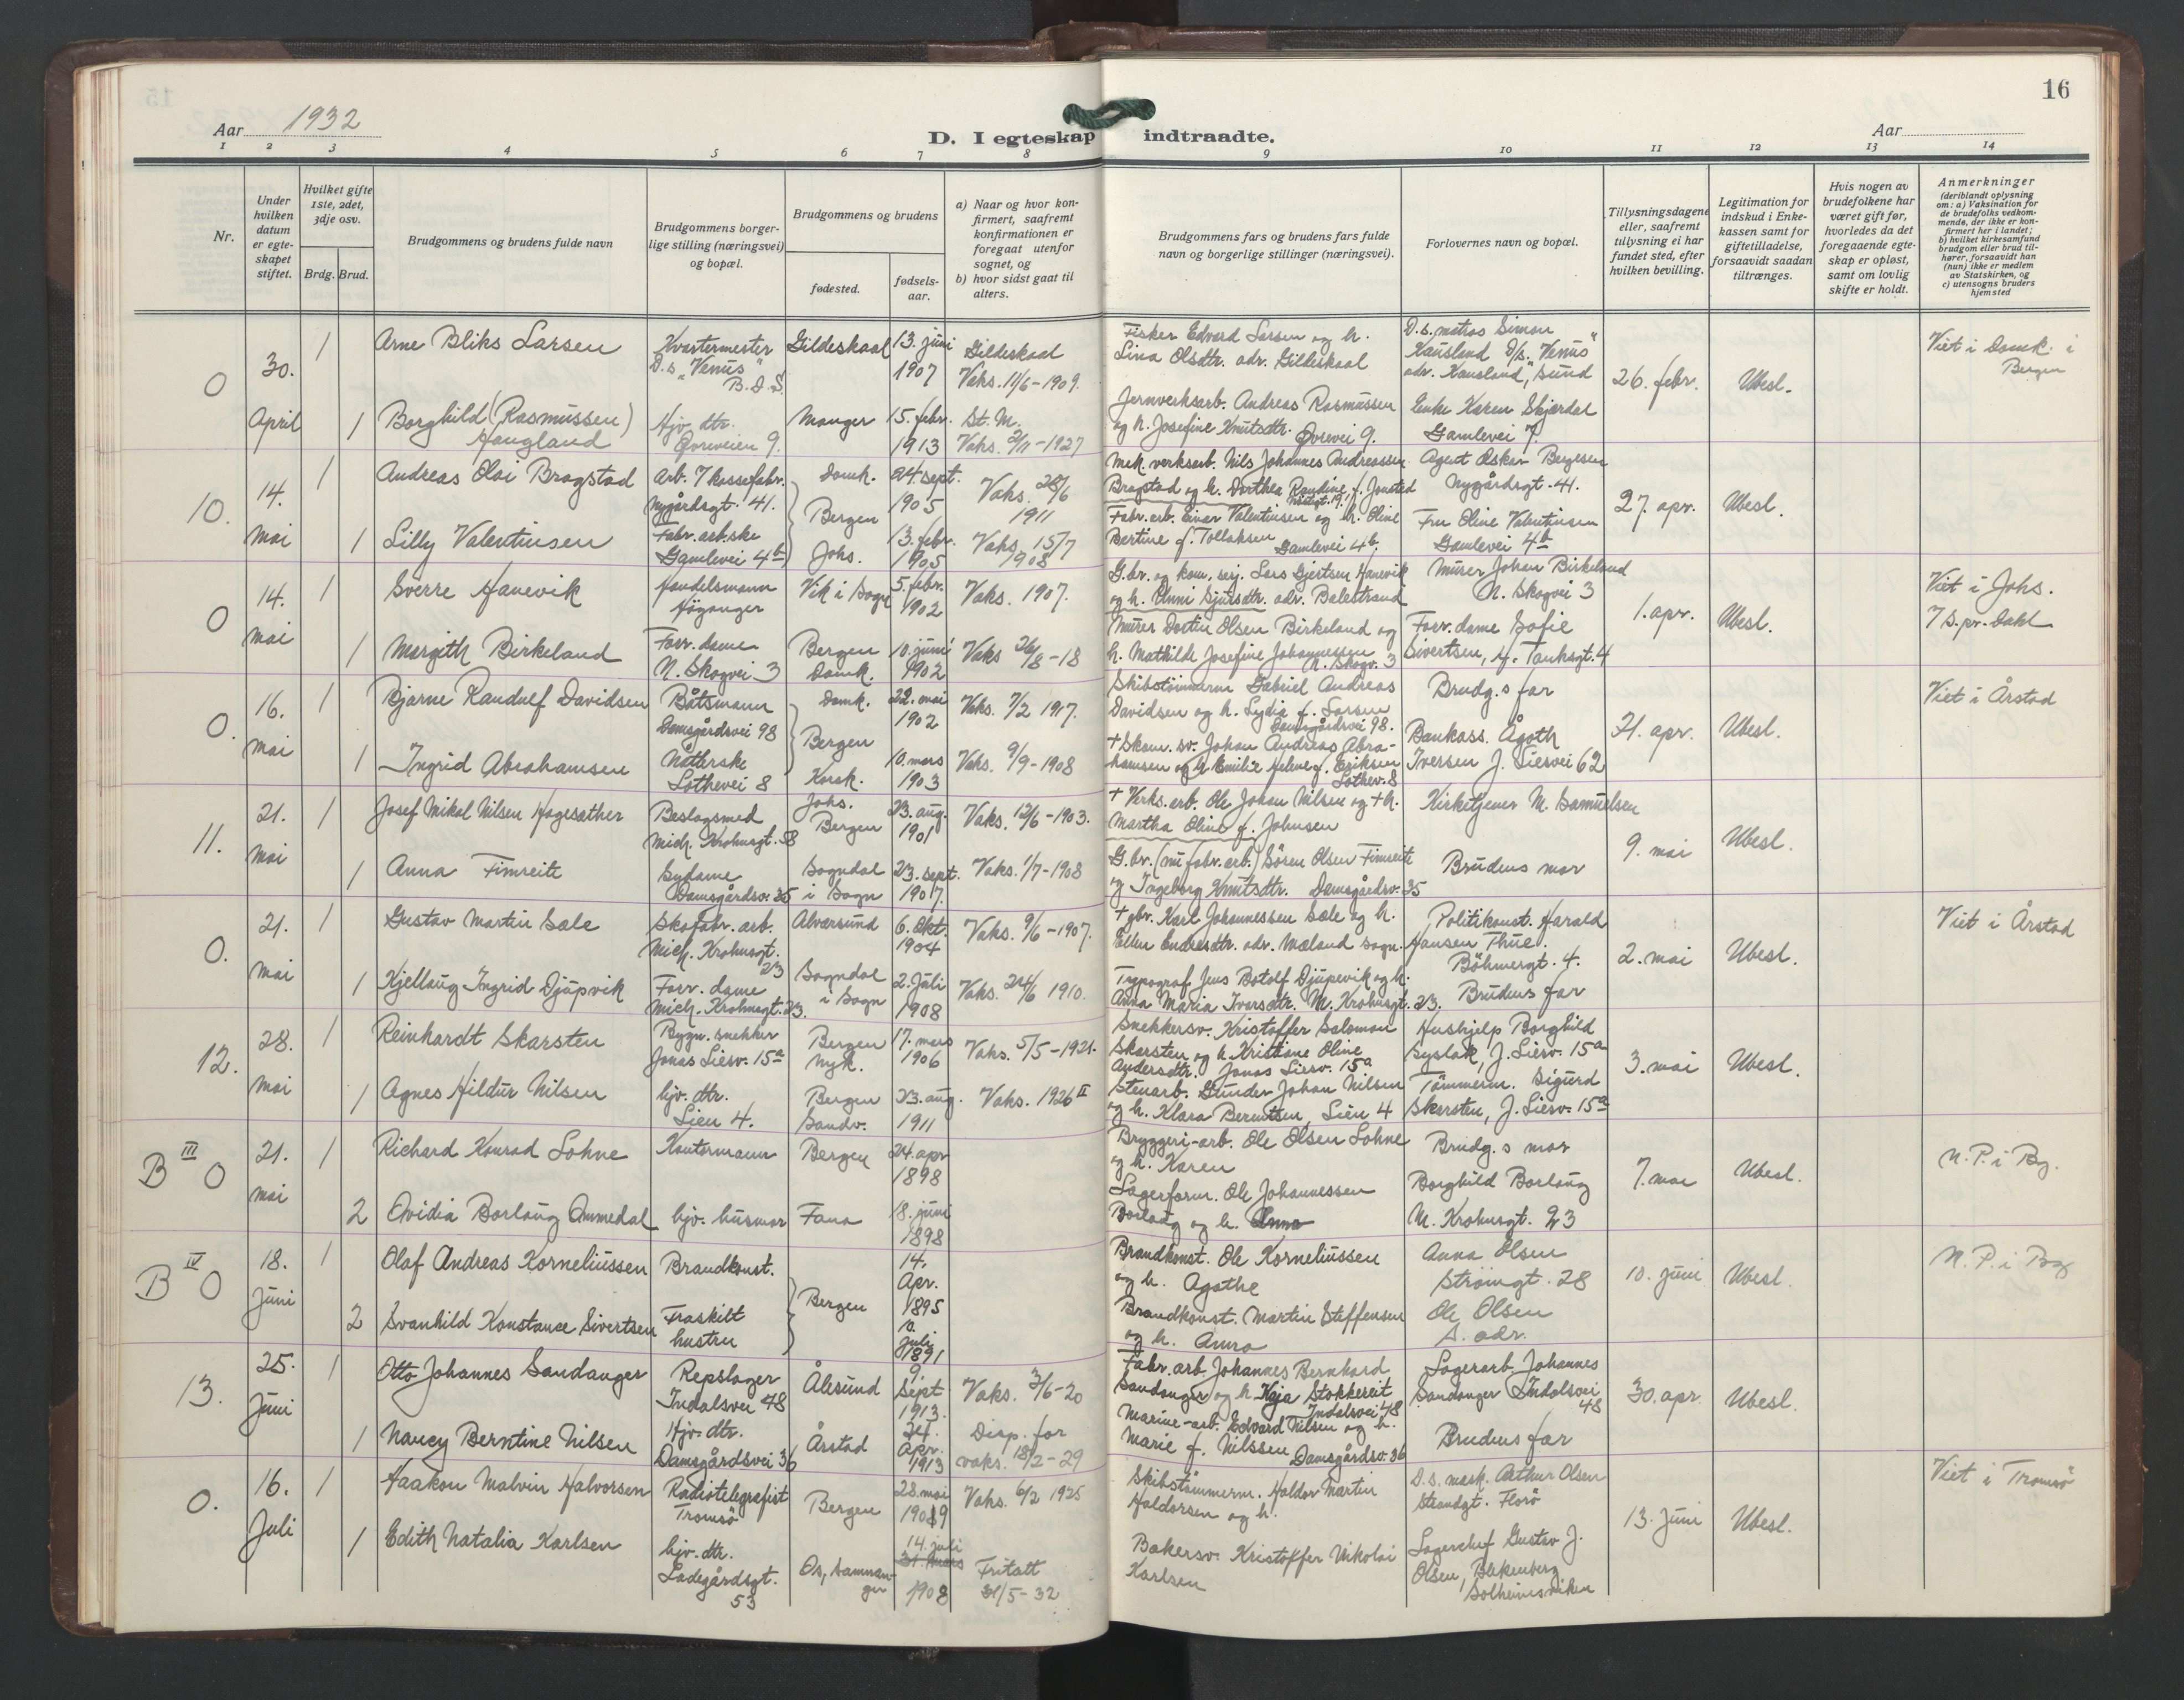 15
16
Aar 1932
D. I egteskap indtraadte.
Aar
1 2 3 4 5 6 7 8 9 10 11 12 13 14
Nr.
Under hvilken datum er egteskapet stiftet.
Hvilket gifte 1ste, 2det, 3dje osv.
Brdg. Brud.
Brudgommens og brudens fulde navn
Brudgommens borgerlige stilling (næringsvei) og bopæl.
Brudgommens og brudens
fødested.
fødselsaar.
a) Naar og hvor konfirmert, saafremt konfirmationen er foregaat utenfor sognet, og
b) hvor sidst gaat til alters.
Brudgommens fars og brudens fars fulde navn og borgerlige stillinger (næringsvei).
Forlovernes navn og bopæl.
Tillysningsdagene eller, saafremt tillysning ei har fundet sted, efter hvilken bevilling.
Legitimation for indskud i Enkekassen samt for giftetilladelse, forsaavidt saadan tiltrænges.
Hvis nogen av brudefolkene har været gift før, hvorledes da det foregaaende egteskap er opløst, samt om lovlig skifte er holdt.
Anmerkninger
(deriblandt oplysning om: a) Vaksination for de brudefolks vedkommende, der ikke er konfirmert her i landet; b) hvilket kirkesamfund brudgom eller brud tilhører, forsaavidt han (hun) ikke er medlem av Statskirken, og c) utensogns bruders hjemsted
0 30. April
1 Arne Bliks Larsen
Kvartermester D.s. "Venus" B.D.S.
Gildeskaal
13. juni 1907
Gildeskaal Vaks. 11/6-1909.
Fisker Edvard Larsen og h. Lina Olsdtr. adr. Gildeskaal
D.s. matros Simon Kausland D/s. "Venus" adr. Kausland, Sund
26. febr.
Ubesl.
Viet i Domk. i Bergen
1 Borghild (Rasmussen) Haugland
Hjv. dtr. Øvreveien 9.
Manger
15. febr. 1913
St. M. Vaks. 2/11-1927
Jernverksarb. Andreas Rasmussen og h. Josefine Knutsdtr. Øvrevei 9.
Enke Karen Skjærdal Gamlevei 7.
10. 14. mai
1 Andreas Olai Bragstad
Arb. i kassefabr. Nygårdsgt. 41.
Domk. Bergen
24. sept. 1905
Vaks. 28/6 1911
Mek. verksarb. Nils Johannes Andreassen Bragstad og h. Dorthea Randine f. Jonsted
Agent Oskar Bergesen Nygårdsgt. 41.
27. apr.
Ubesl.
1 Lilly Valentinsen
Fabr. arb.ske Gamlevei 4b
Johs.
13. febr. 1905
Vaks. 15/7 1908
Fabr. arb. Einar Valentinsen og h. Oline Bertine f. Tollaksen Gamlevei 4b.
Fru Oline Valentinsen Gamlevei 4b
0 14. mai
1 Sverre Hanevik
Handelsmann Høyanger
Vik i Sogn
5. febr. 1902
Vaks. 1907.
G.br. og kom. serj. Lars Gjertsen Hanevik og h. Unni Sjursdtr. adr. Balestrand
Murer Johan Birkeland N. Skogvei 3
1. apr.
Ubesl.
Viet i Johs. 7 s. pr. Dahl
1 Margith Birkeland
Forr. dame N. Skogvei 3
Bergen Domk.
10. juni 1902
Vaks 26/8-18
Murer Dortin Olsen Birkeland og h. Mathilde Josefine Johannessen N. Skogv. 3
Forr. dame Sofie Sivertsen, N. Tanksgt. 4
0. 16. mai
1 Bjarne Randulf Davidsen
Båtsmann Damsgårdsvei 98
Domk. Bergen
22. mai 1902
Vaks. 7/2 1917.
Skibstømmerm Gabriel Andreas Davidsen og h. Lydia f. Larsen Damsgårdsvei 98.
Brudg.s far
21. apr.
Ubesl.
Viet i Årstad
1 Ingrid Abrahamsen
Nåtlerske Lothevei 8
Korsk.
10. mars 1903
Vaks. 9/9-1908
+ Skom. sv. Johan Andreas Abrahamsen og h. Emilie Helene f. Eriksen Lothev. 8
Bankass. Ågoth Iversen J. Liesvei 62
11. 21. mai
1 Josef Mikal Nilsen Hagesæther
Beslagsmed Mich. Krohnsgt. 58
Johs. Bergen
23. aug. 1901
Vaks. 12/6-1903.
+ Verks. arb. Ole Johan Nilsen og + h. Martha Oline f. Johnsen
Kirketjener M. Samuelsen
9. mai
Ubesl.
1 Anna Fimreite
Sydame Damsgårdsv. 35
Sogndal i Sogn
23. sept. 1907.
Vaks. 1/7-1908
G.br. (nu fabr. arb.) Søren Olsen Fimreite og Ingeborg Knutsdtr. Damsgårdsv. 35
Brudens mor
0. 21. mai
1 Gustav Martin Sæle
Skofabr. arb. Mich. Krohnsgt. 23
Alversund
6. Okt. 1904
Vaks. 9/6-1907.
+ gbr. Karl Johannessen Sæle og h. Ellen Endresdtr. adr. Mæland sogn.
Politikonst. Harald Hansen Thue. Böhmergt. 4.
2. mai
Ubesl.
Viet i Årstad
1 Kjellaug Ingrid Djupvik
Forr. dame Mich. Krohnsgt. 23.
Sogndal i Sogn
2. Juli 1908
Vaks. 24/6 1910.
Typograf Jens Botolf Djupevik og h. Anna Maria Iversdtr. M. Krohnsgt. 23.
Brudens far
12. 28. mai
1 Reinhardt Skarsten
Bygn. snekker Jonas Liesv. 15a
Bergen Nyk.
17. mars 1906
Vaks. 5/5-1921.
Snekkersv. Kristoffer Salomon Skarsten og h. Kristiane Oline Andersdtr. Jonas Liesv. 15a
Hushjelp Borghild Syslak, J. Liesv. 15a
3. mai
Ubesl.
1 Agnes Hildur Nilsen
hjv. dtr. Lien 4.
Bergen Sandv.
23. aug. 1911
Vaks. 1926 II
Stenarb. Gunder Johan Nilsen og h. Klara Berntsen, Lien 4
Tømmerm. Sigurd Skarsten, J. Liesv. 15a
B III 0 21. mai
1 Richard Konrad Lohne
Kontormann
Bergen
24. apr 1898
Bryggeri-arb. Ole Olsen Lohne og h. Karen
Brudg.s mor
7. mai
Ubesl.
N.P. i Bg.
2 Ovidia Borlaug Ommedal
hjv. husmor
Fana
18. juni 1898
Lagerform. Ole Johannessen Borlaug og h. Anna
Borghild Borlaug M. Krohnsgt. 23
B IV 0 18. juni
1 Olaf Andreas Korneliussen
Brandkonst.
Bergen
14. Apr. 1895
Brandkonst. Ole Korneliussen og h. Agathe
Anna Olsen Strömgt. 28
10. juni
Ubesl.
N.P. i Bg
2 Svanhild Konstance Sivertsen
Fraskilt hustru
10. juli 1891
Brandkonst. Martin Steffensen og h. Anna
Ole Olsen S. adr.
13. 25. Juni
1 Otto Johannes Sandanger
Repslager Indalsvei 48
Ålesund
9. Sept 1913.
Vaks. 3/6-20
Fabr. arb Johannes Bernhard Sandanger og h Kaja Stokkereit Indalsvei 48
Lagerarb Johannes Sandanger Indalsvei 48
30. apr.
Ubesl.
1 Nancy Berntine Nilsen
Hjv. dtr. Damsgårdsvei 36
Årstad
24. Apr. 1913
Disp. for vaks. 18/2-29
Marine-arb. Edvard Nilsen og h. Marie f. Nilssen Damsgårdsv. 36
Brudens far
0. 16. Juli
1 Haakon Malvin Halvorsen
Radiotelegrafist Tromsö
Bergen
28. mai 1909
Vaks. 6/2 1925
Skibstömmerm. Haldor Martin Haldorsen og h.
D.s. mask. Arthur Olsen Strandgt. Florö
13. Juni
Ubesl.
Viet i Tromsö
1 Edith Natalia Karlsen
hjv. dtr. Ladegårdsgt. 53
Os, Samnanger
14. juli 31. mars 1908
Fritatt 31/5-32
Bakersv. Kristoffer Nikolai Karlsen
Lagerchef Gustav J. Olsen, Blekenberg Solheimsviken